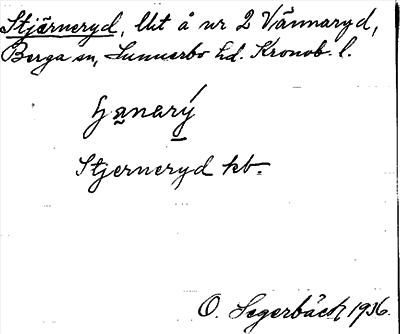 Stjärneryd, lht å nr 2 Vännaryd,
Berga sn, Sunnerbo hd. Kronob. l.
Stjerneryd kb.
O. Segerbäck 1936.